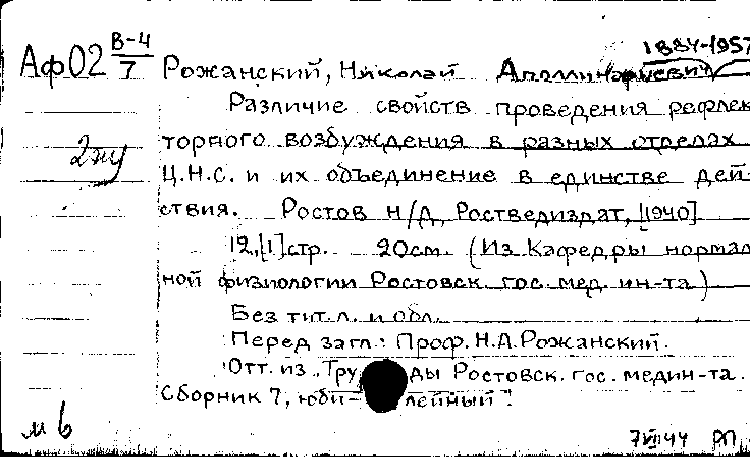 1884-1957
Аф02 В-4/7
Рожанский, Николай Аполлинариевич
Различие свойств проведения рефлек-
торного возбуждения в разных отделах
2 экз
Ц.Н.С. и их объединение в единстве дей-
ствия. Ростов н/Д, Ростведиздат, [1940]
12,[1]стр. 20см. (Из Кафедры нормал
ной физиологии Ростовск. гос. мед. ин-та)
Без тит. л. и обл.
Перед загл.: Проф. Н.А.Рожанский.
Отт. из „Труды Ростовск. гос. медин-та.
Сборник 7, юби-лейный".
м 6
7VII44 РП